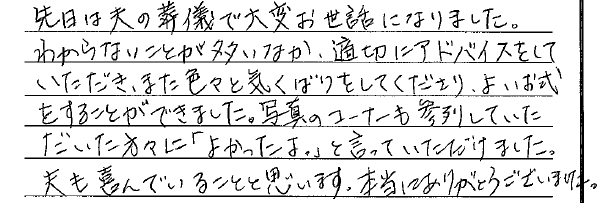 先日は夫の葬儀で大変お世話になりました。
わからないことが多いなか、適切にアドバイスをして
いただき、また色々と気くばりをしてくださり、よいお式
をすることができました。写真のコーナーも参列していた
だいた方々に「よかったよ。」と言っていただけました。
夫も喜んでいることと思います。本当にありがとうございました。